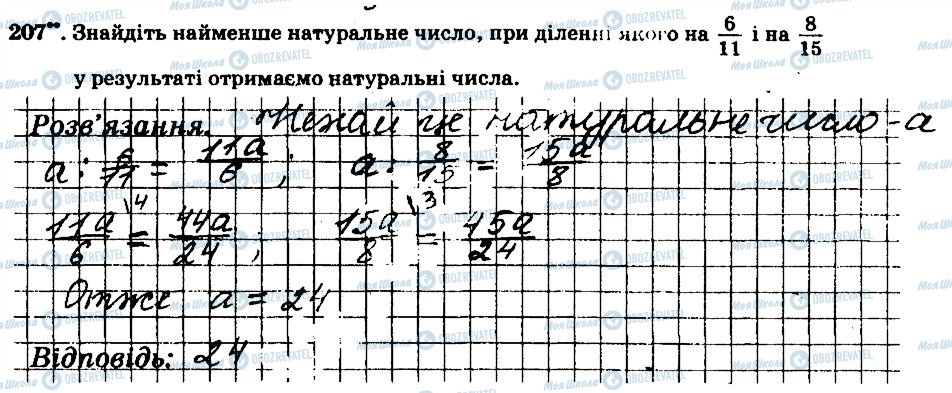 207••. Знайдіть найменше натуральне число, при діленні якого на 6/11 і на 8/15
у результаті отримаємо натуральні числа.
Розв'язання. Нехай це натуральне число - a
a : 6/11 = 11a/6 ; a : 8/15 = 15a/8
11a/6 \4 = 44a/24 ; 15a/8 \3 = 45a/24
Отже a = 24
Відповідь: 24